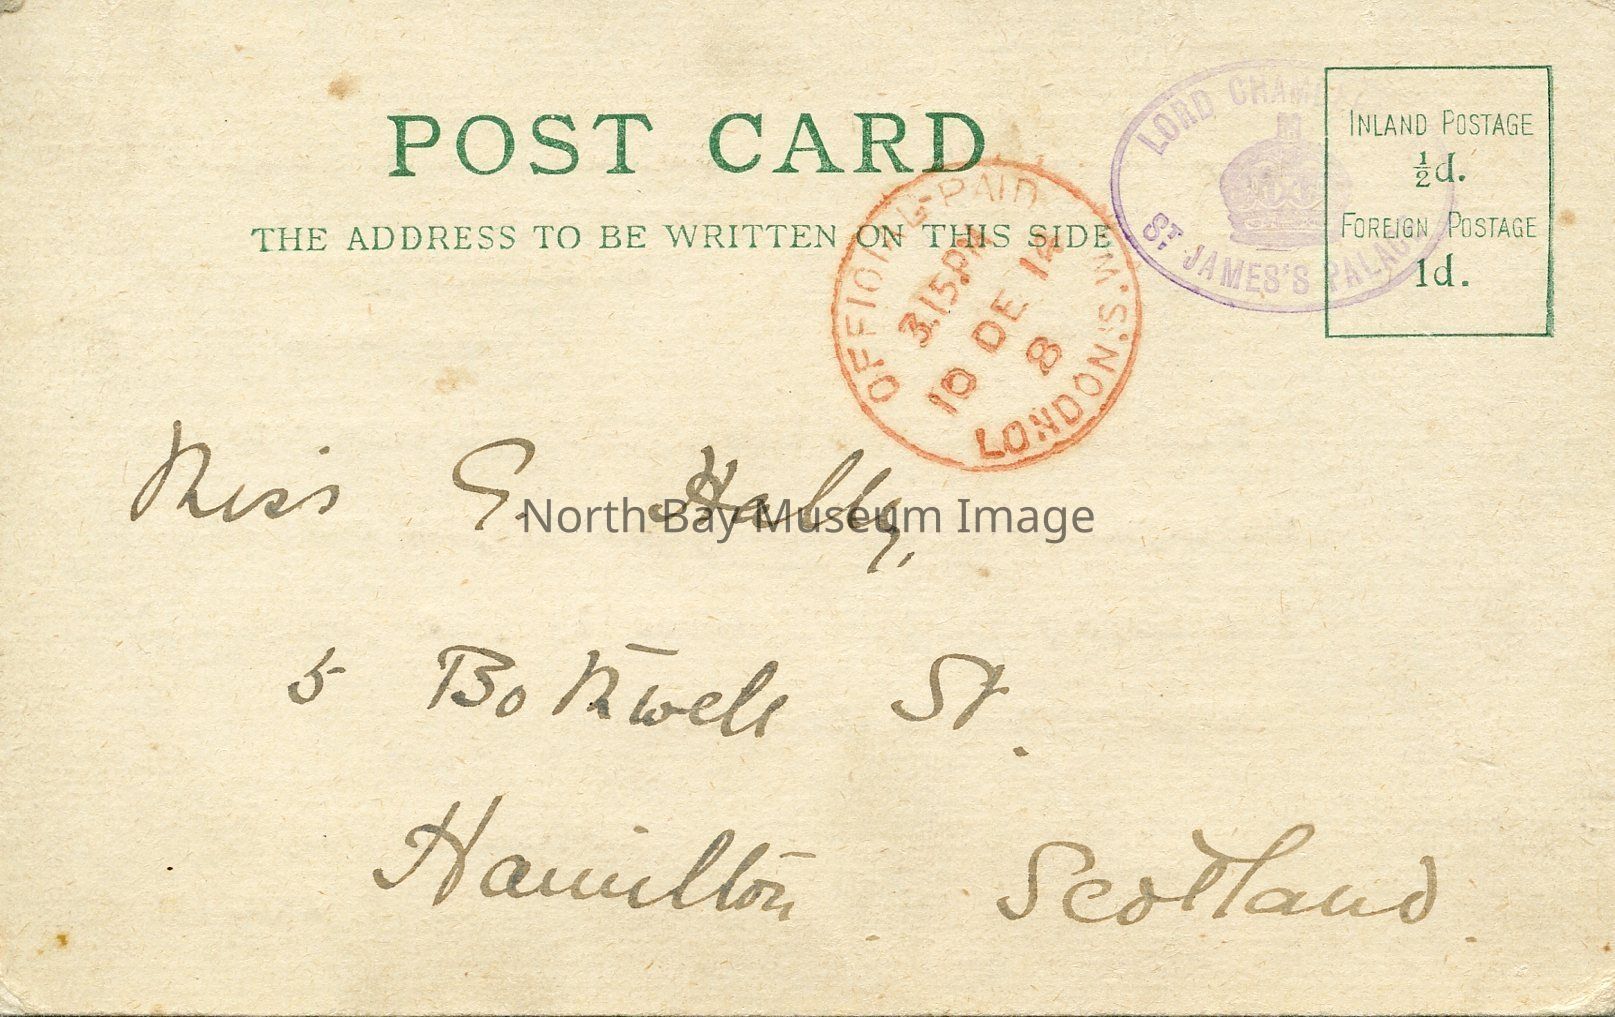 POST CARD
THE ADDRESS TO BE WRITTEN ON THIS SIDE
INLAND POSTAGE
½d.
FOREIGN POSTAGE
1d.
LORD
ST JAMES'S PALACE
OFFICIAL PAID
3.15PM
10 DE 14
8
LONDON.S.
Miss G.
North Bay Museum Image
5 Bothwell St.
Hamilton Scotland